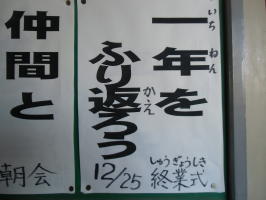 一年を
いちねん
ふり返ろう
かえ
12/25 終業式
しゅうぎょうしき
仲間と
朝会